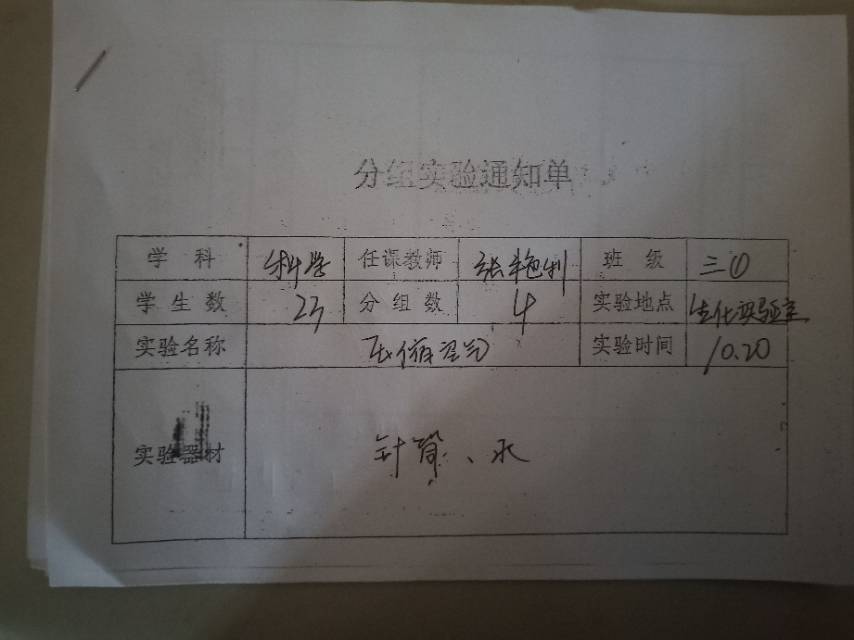 分组实验通知单
学 科 科学 任课教师 张艳利 班 级 三①
学生数 23 分组数 4 实验地点 生化实验室
实验名称 压缩空气 实验时间 10.20
实验器材 针筒、水